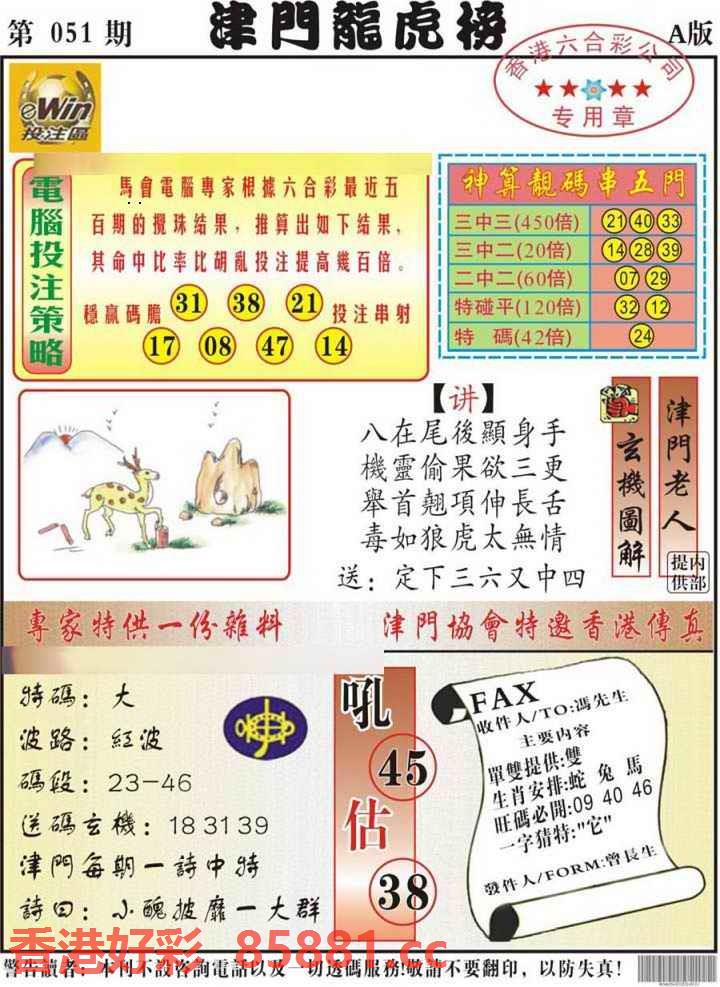 第 051 期
津門龍虎榜
A版
香港六合彩公司
★★★★
专用章
eWin
投注區
電腦投注策略
馬會電腦專家根據六合彩最近五
百期的攪珠结果，推算出如下结果，
其命中比率比胡亂投注提高幾百倍。
穩贏碼膽 31 38 21 投注串射
17 08 47 14
神算靓碼串五門
三中三(450倍) 21 40 33
三中二(20倍) 14 28 39
二中二(60倍) 07 29
特碰平(120倍) 32 12
特 碼(42倍) 24
【讲】
八在尾後顯身手
機靈偷果欲三更
舉首翹項伸長舌
毒如狼虎太無情
送：定下三六又中四
玄機圖解
津門老人
内部提供
專家特供一份雜料
津門協會特邀香港傳真
特碼：大
波路：紅波
碼段：23-46
送碼玄機：18 31 39
津門每期一詩中特
詩曰：小醜披靡一大群
吼
45
估
38
FAX
收件人/TO:馮先生
主要内容
單雙提供:雙
生肖安排:蛇 兔 馬
旺碼必開:09 40 46
一字猜特:"它"
發件人/FORM:曾長生
香港好彩 85881.cc
警告讀者：本刊不設咨詢電話以及一切透碼服務!敬請不要翻印，以防失真!